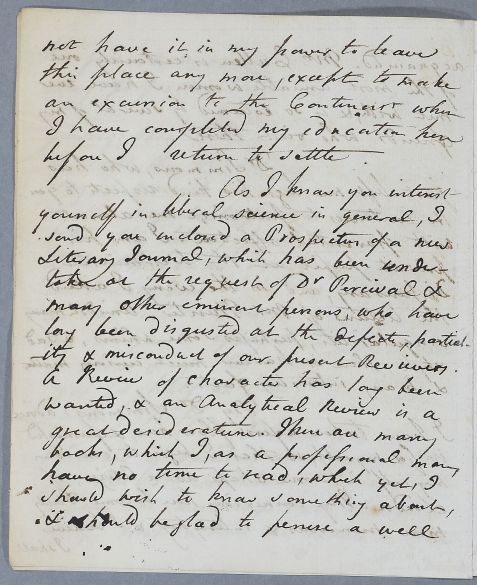 not have it in my power to leave
this place any more, except to make
an excursion to the Continent when
I have completed my education here
before I return to settle
As I know you interest
yourself in liberal science in general, I
send you inclosed a Prospectus of a new
Literary Journal, which has been under-
taken at the request of Dr Percival &
many other eminent persons, who have
long been disgusted at the defects, partial-
ity & misconduct of our present Reviewers.
A Review of character has long been
wanted, & an Analytical Review is a
great desideratum. There are many
books, which I, as a professional man,
have no time to read, which yet, I
should wish to know something about,
& should be glad to peruse a well